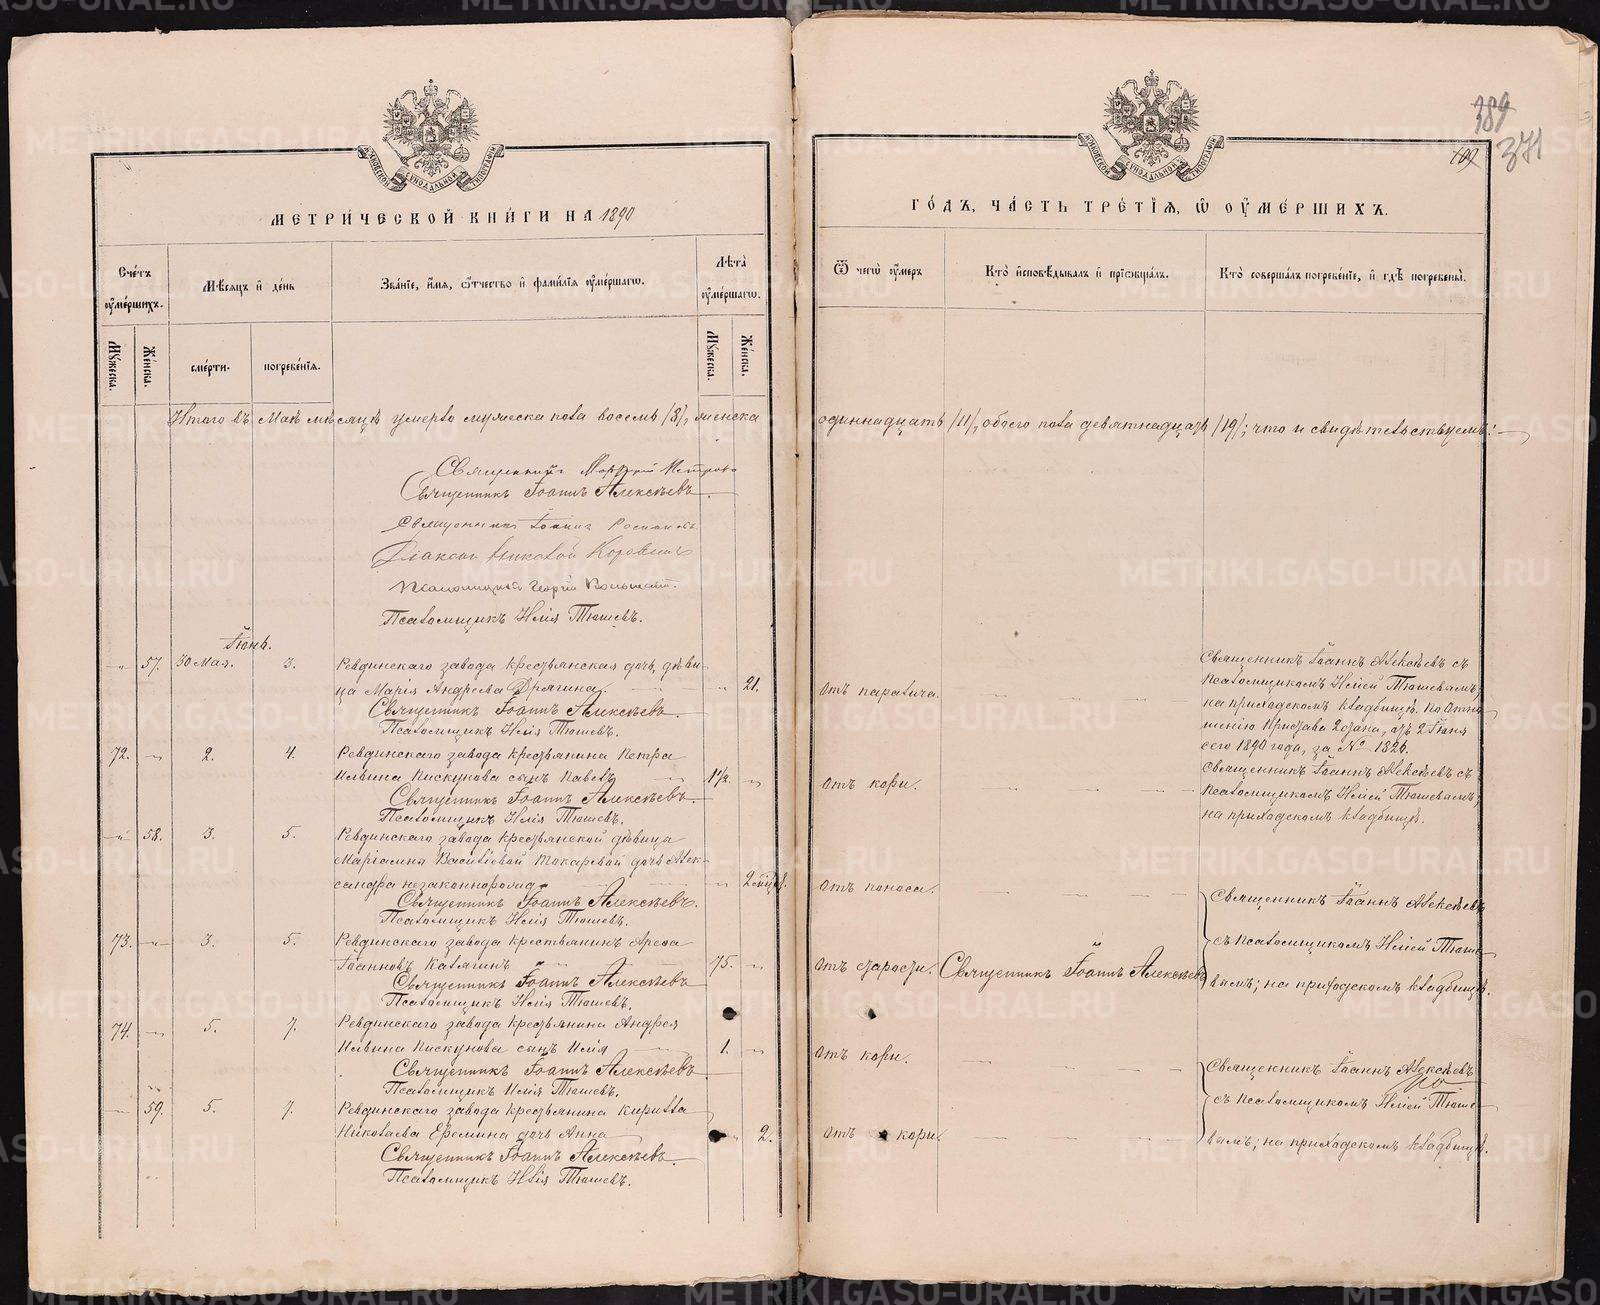 МЕТРИЧЕСКОЙ КНИГИ НА 1890
Счетъ оумершихъ.
Мѣсяцъ и день
Званіе, имя, отчество и фамилія оумершагω.
Лѣта оумершагω.
Мужеска.
Женска.
смерти.
погребенія.
Мужеска.
Женска.
Итого въ Маѣ мѣсяцѣ умерло мужеска пола восемь /8/, женска
Священникъ Петровъ
Священникъ Іоаннъ Алексѣевъ.
Священникъ Іоаннъ
Діаконъ Николай Коровинъ
Псаломщикъ Георгій
Псаломщикъ Илія Тюшевъ.
Іюнь.
57. 30 Мая. 3. Ревдинскаго завода крестьянская дочь, дѣви-
ца Марія Андреева Дрягина. 21.
Священникъ Іоаннъ Алексѣевъ.
Псаломщикъ Илія Тюшевъ.
72. 2. 4. Ревдинскаго завода крестьянина Петра
Ильина Пискунова сынъ Павелъ 1 1/2
Священникъ Іоаннъ Алексѣевъ.
Псаломщикъ Илія Тюшевъ.
58. 3. 5. Ревдинскаго завода крестьянской дѣвицы
Маріамны Васильевой Макаровой дочь Алек-
сандра незаконнорожд. 2 мѣс.
Священникъ Іоаннъ Алексѣевъ.
Псаломщикъ Илія Тюшевъ.
73. 3. 5. Ревдинскаго завода крестьянинъ Арефа
Іоанновъ Калягинъ 75.
Священникъ Іоаннъ Алексѣевъ
Псаломщикъ Илія Тюшевъ.
74. 5. 7. Ревдинскаго завода крестьянина Андрея
Ильина Пискунова сынъ Илія 1.
Священникъ Іоаннъ Алексѣевъ
Псаломщикъ Илія Тюшевъ.
59. 5. 7. Ревдинскаго завода крестьянина Кирилла
Николаева Еремина дочь Анна 2.
Священникъ Іоаннъ Алексѣевъ.
Псаломщикъ Илія Тюшевъ.
389
109
371
ГОДЪ, ЧАСТЬ ТРЕТІЯ, Ѿ ОУМЕРШИХЪ.
Ѿ чегω оумеръ
Кто исповѣдывалъ и пріобщалъ.
Кто совершалъ погребеніе, и гдѣ погребены.
одиннадцать /11/, обоего пола девятнадцать /19/; что и свидѣтельствуемъ:
отъ паралича.
Священникъ Іоаннъ Алексѣевъ съ
псаломщикомъ Иліей Тюшевымъ,
на приходскомъ кладбищѣ. По отно-
шенію Пристава 2 стана, отъ 2 Іюня
сего 1890 года, за № 1826.
отъ кори.
Священникъ Іоаннъ Алексѣевъ съ
псаломщикомъ Иліей Тюшевымъ,
на приходскомъ кладбищѣ.
отъ поноса.
Священникъ Іоаннъ Алексѣевъ
съ псаломщикомъ Иліей Тюше-
вымъ; на приходскомъ кладбищѣ.
отъ старости. Священникъ Іоаннъ Алексѣевъ
отъ кори.
Священникъ Іоаннъ Алексѣевъ
съ псаломщикомъ Иліей Тюше-
вымъ; на приходскомъ кладбищѣ.
отъ кори.
METRIKI.GASO-URAL.RU